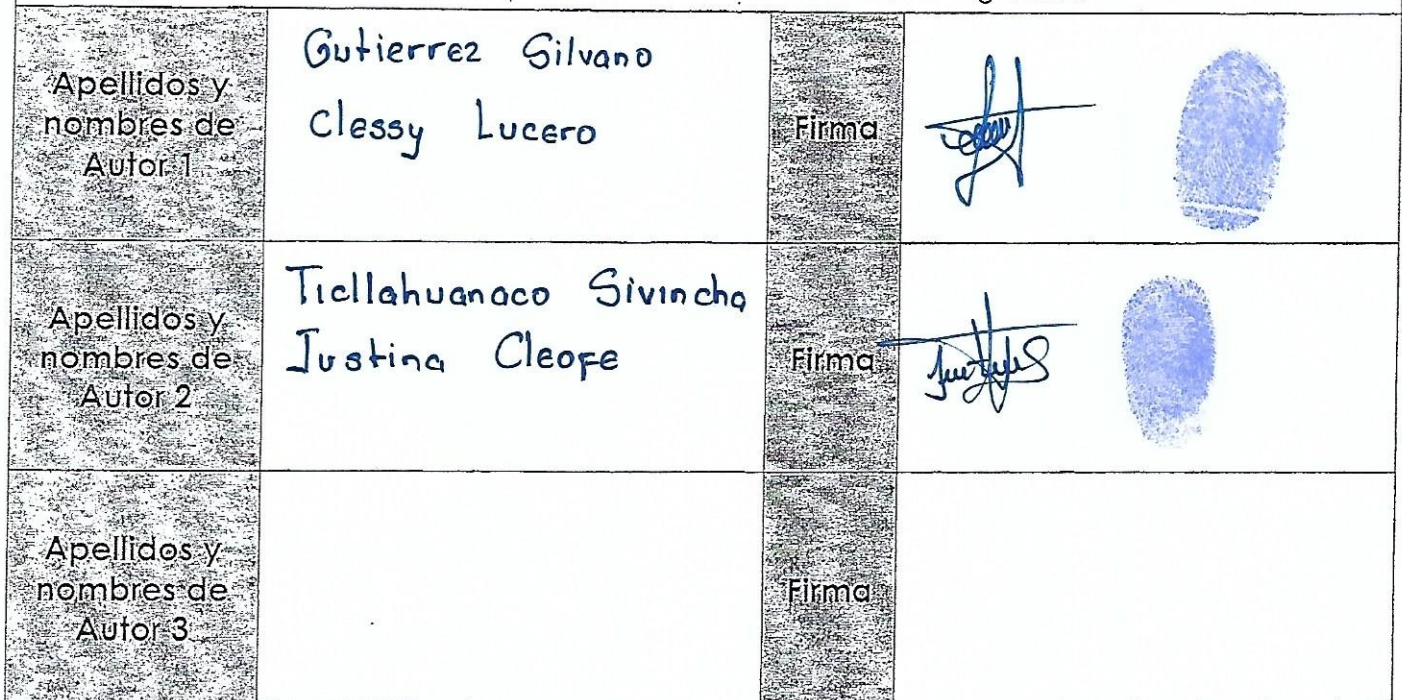 Apellidos y
nombres de
Autor 1
Gutierrez Silvano
Clessy Lucero
Firma
Apellidos y
nombres de
Autor 2
Ticllahuanaco Sivincha
Justina Cleofe
Firma
Apellidos y
nombres de
Autor 3
Firma